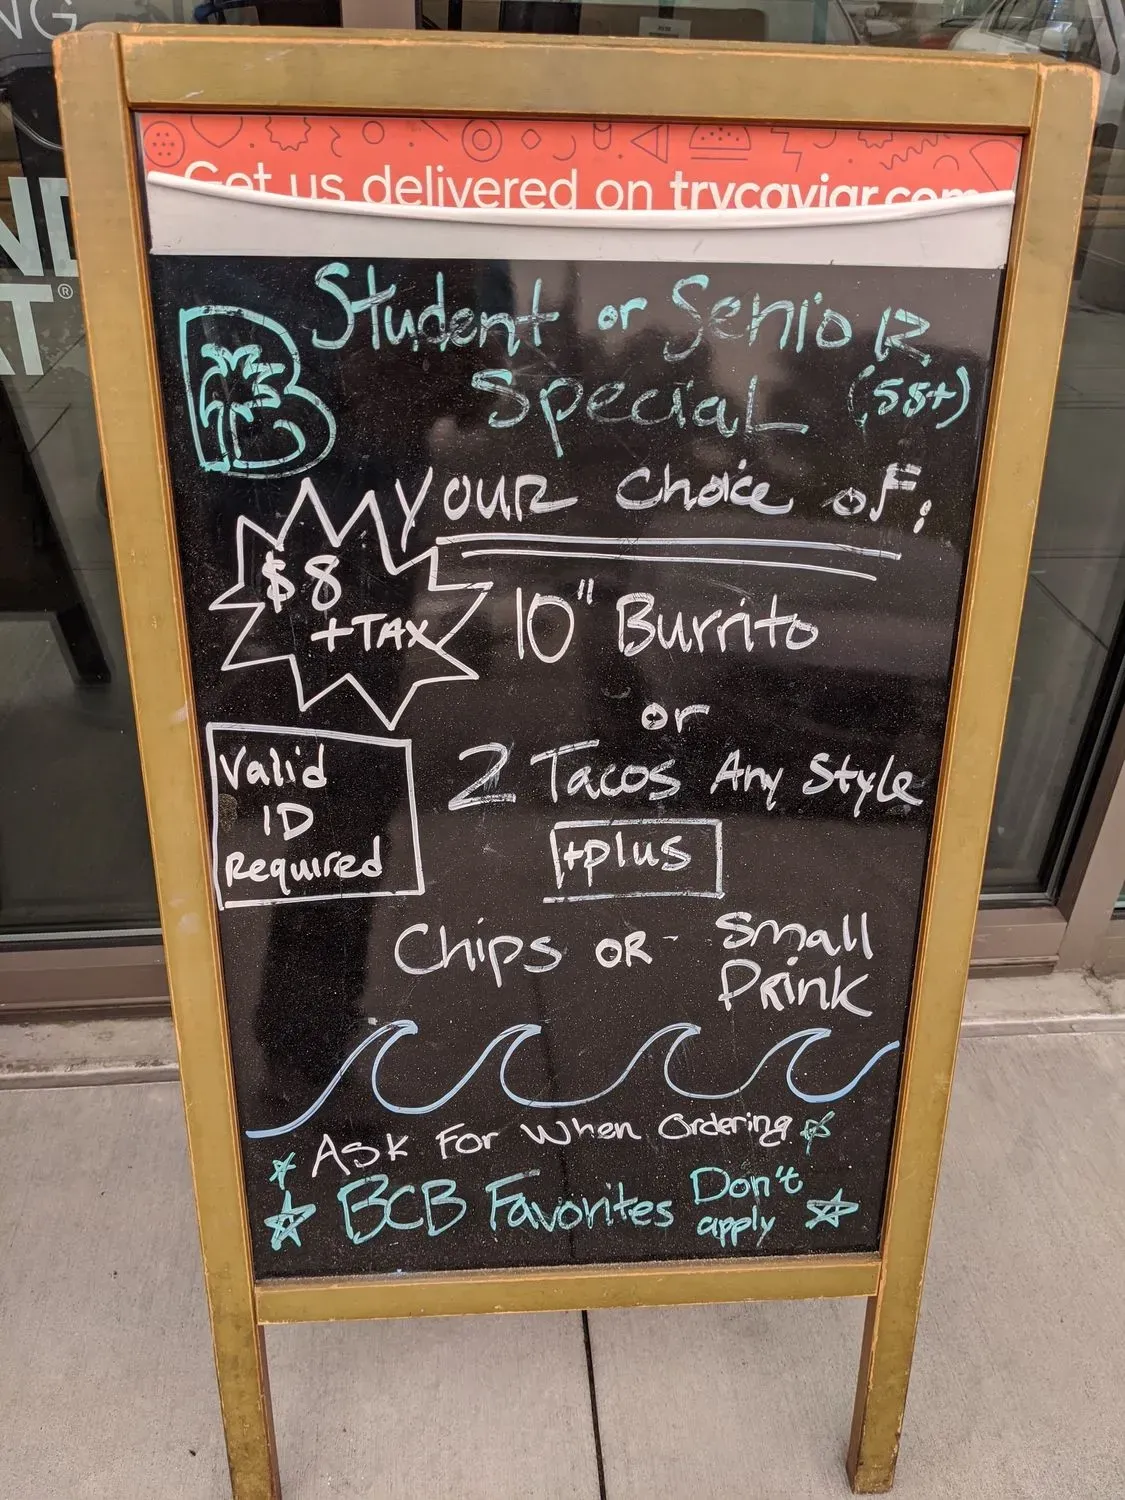 NG
ND
AT®
Get us delivered on trycaviar.com
B
Student or Senior
Special (55+)
Your Choice of:
$8
+TAX
10" Burrito
or
Valid
ID
Required
2 Tacos Any Style
+plus
Chips OR - Small
Drink
Ask For When Ordering
BCB Favorites Don't
apply